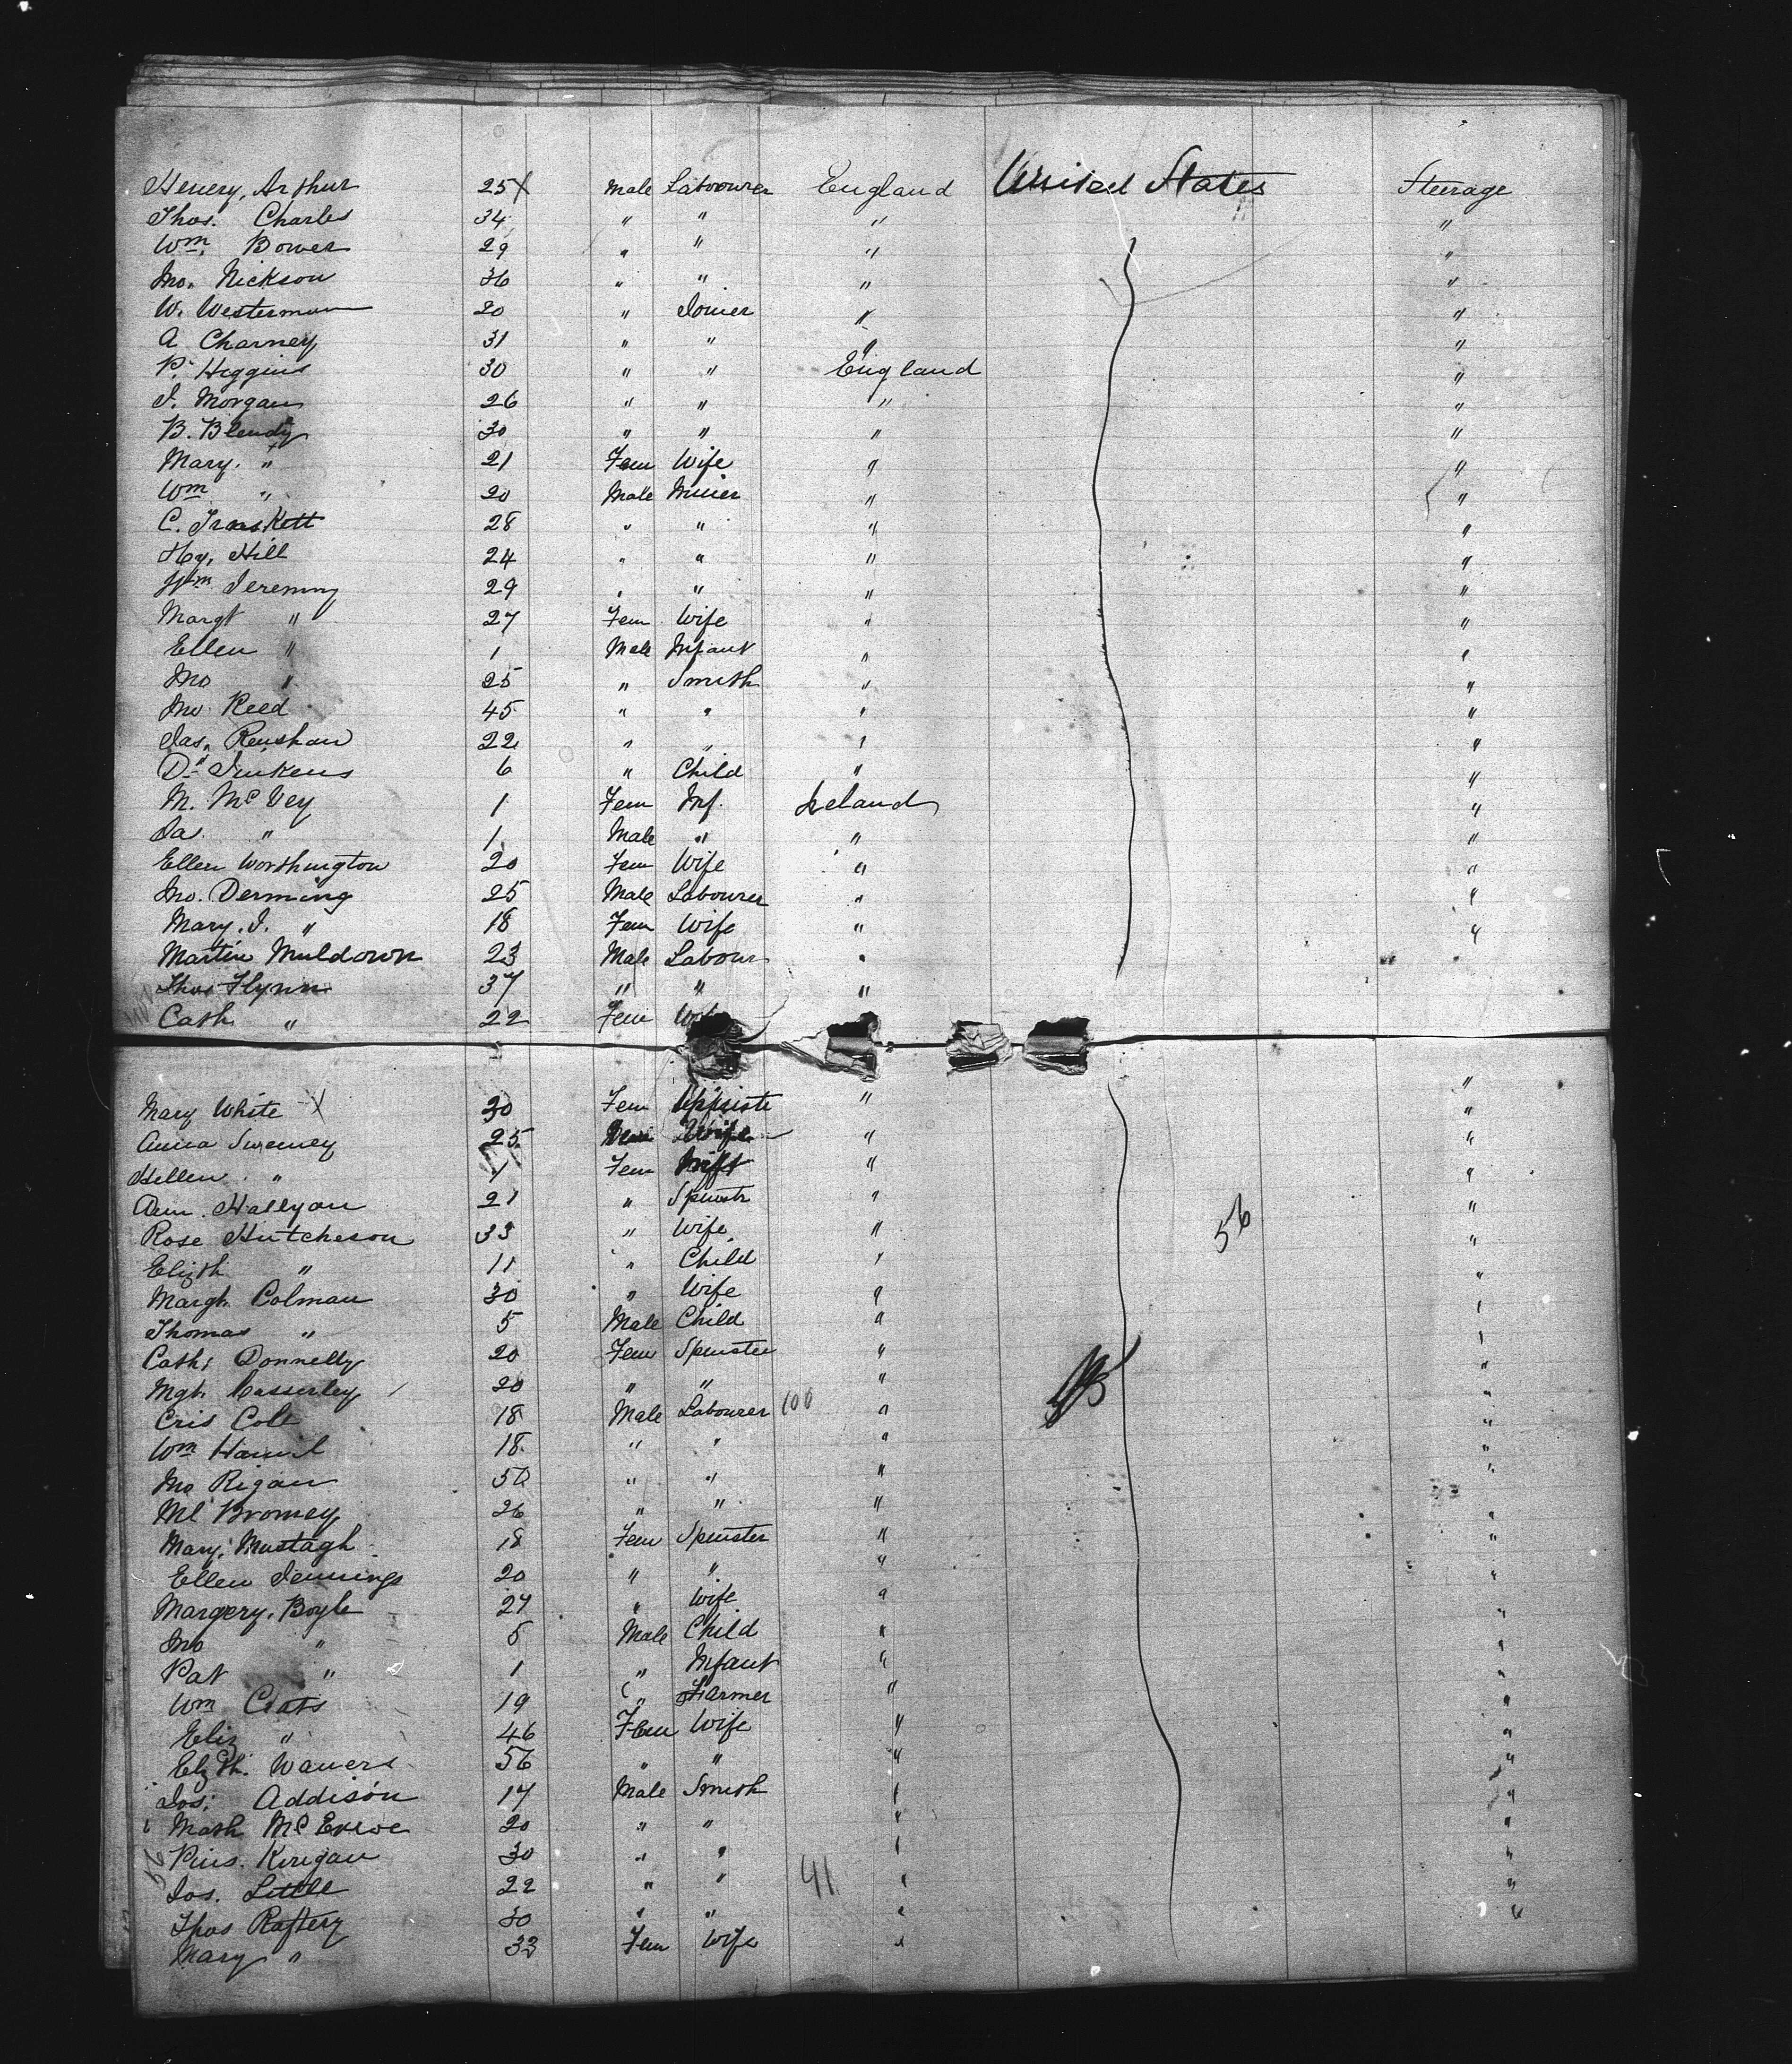 Henery, Arthur 25 X Male Labourer England United States Steerage
Thos. Charles 34 " " " "
Wm. Bower 29 " " " "
Jno. Nickson 36 " " " "
W. Westerman 20 " Joiner " "
A Charney 31 " " " "
P. Higgins 30 " " England "
J. Morgan 26 " " " "
B. Blendy 30 " " " "
Mary. " 21 Fem Wife " "
Wm " 20 Male Miner " "
C. 28 " " " "
Hy. Hill 24 " " " "
Wm Jeremy 29 " " " "
Margt " 27 Fem Wife " "
Ellen " 1 Male Infant " "
Jno " 25 " Smith " "
Jno Reed 45 " " " "
Jas. Renshaw 22 " " " "
D. Jenkens 6 " Child " "
M. McVey 1 Fem Inf. Ireland "
Ja. " 1 Male " " "
Ellen Worthington 20 Fem Wife " "
Jno. Derming 25 Male Labourer " "
Mary. J. " 18 Fem Wife " "
Martin Muldown 23 Male Labour "
Thos Flynn 37 " " "
Cath " 22 Fem
"
Mary White X 30 Fem " "
Anna Sweeney 25 Wife " "
Hellen " 1 Fem " "
Ann. Hallyon 21 " Spinstr " "
Rose Hutcheson 33 " Wife " 56 "
Elizth " 11 " Child " "
Margt. Colman 30 " Wife " "
Thomas " 5 Male Child " "
Cath. Donnelly 20 Fem Spinster " "
Mgt. Casserley 20 " " " "
Cris Cole 18 Male Labourer 100 " "
Wm Hamil 18 " " " "
Jno Rigan 50 " " " "
Ml Bromey 26 " " " "
Mary. Mustagh 18 Fem Spinster " "
Ellen Jennings 20 " " " "
Margery. Boyle 27 " Wife " "
Jno " 5 Male Child " "
Pat " 1 " Infant " "
Wm Coats 19 " Farmer " "
Eliz " 46 Fem Wife " "
Elzth. Wauers 56 " " " "
Jos: Addison 17 Male Smith " "
Math 20 " " " "
Kerigan 30 " " " "
Jos. Little 22 " " 41 " "
Thos Raftery 30 " " " "
Mary " 33 Fem Wife "